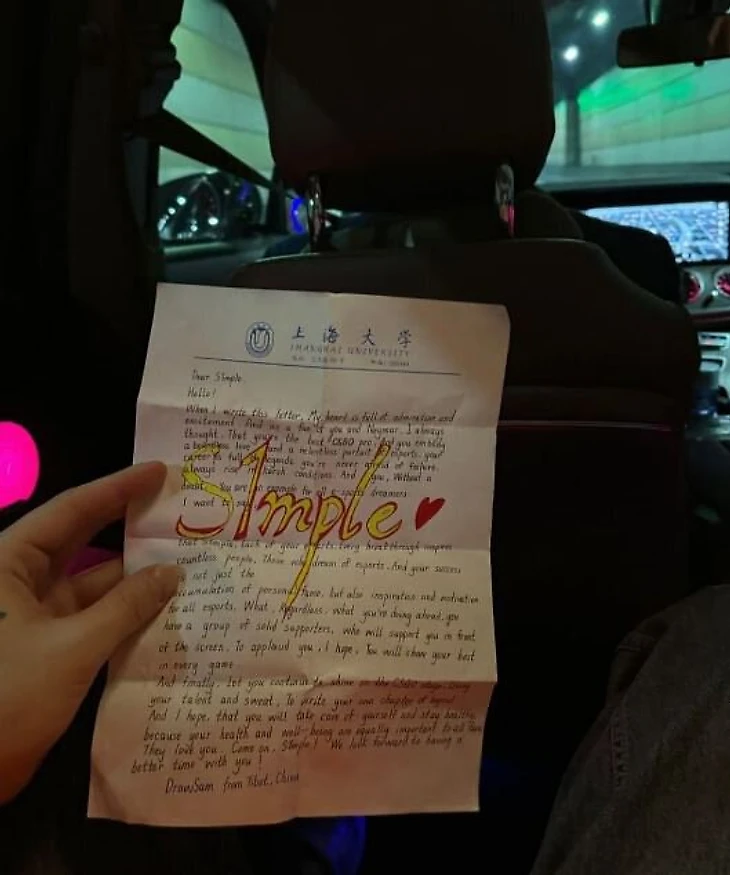 上海大学
SHANGHAI UNIVERSITY
Dear S1mple.
Hello!
When I write this letter, My heart is full of admiration and
excitement And as a fan of you and Neymar. I always
thought. That you're the best CSGO pro. But you embody
a love and a relentless pursuit esports. your
career is full legends you're never afraid of failure.
always rise in harsh conditions. And you, Without a
doubt. You are an example for all esports dreamers
I want to say
S1mple
that S1mple, Each of your esports. Every breakthrough inspires
countless people. Those who dream of esports. And your success
is not just the
accumulation of personal fame, but also inspiration and motivation
for all esports. What, Regardless, what you're doing ahead, you
have a group of solid supporters, who will support you in front
of the screen, To applaud you, I hope, You will show your best
in every game
And finally, let you continue to shine on the CSGO stage. Using
your talent and sweat, To write your own chapter of legend
And I hope, that you will take care of yourself and stay healthy
because your health and well-being are equally important to all fans
They love you. Come on, S1mple! We look forward to having a
better time with you!
DrawSam from Tibet, China